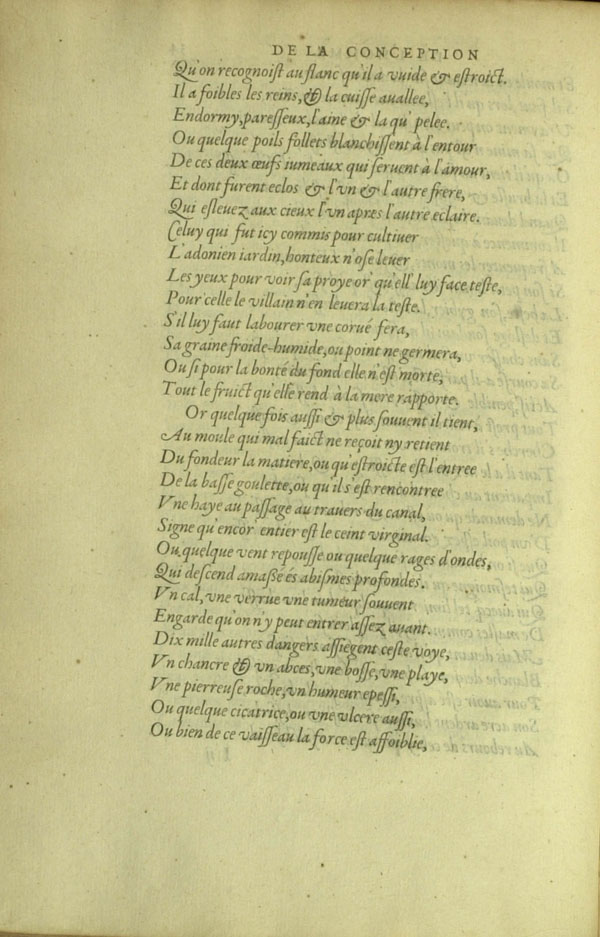 DE LA CONCEPTION
Qu'on recognoiſt au flanc qu'il a vuide & eſtroict.
Il a foibles les reins, & la cuiſſe auallee,
Endormy, pareſſeux, l'aine & la qu' pelee.
Ou quelque poils follets blanchiſſent à l'entour
De ces deux œufs iumeaux qui ſeruent à l'amour,
Et dont furent eclos & l'vn & l'autre frere,
Qui eſleuez aux cieux l'vn apres l'autre eclaire.
Celuy qui fut icy commis pour cultiuer
L'adonien iardin, honteux n'oſe leuer
Les yeux pour voir ſa proye or' qu'ell' luy face teſte,
Pour celle le villain n'en leuera la teſte.
S'il luy faut labourer vne corué fera,
Sa graine froide-humide, ou point ne germera,
Ou ſi pour la bonté du fond elle n'eſt morte,
Tout le fruict qu'elle rend à la mere rapporte.
Or quelque fois auſſi & plus ſouuent il tient,
Au moule qui mal faict ne reçoit ny retient
Du fondeur la matiere, ou qu'eſtroicte eſt l'entree
De la baſſe goulette, ou qu'il s'eſt rencontree
Vne haye au paſſage au trauers du canal,
Signe qu'encor' entier eſt le ceint virginal.
Ou quelque vent repouſſe ou quelque rages d'ondes,
Qui deſcend amaſſé és abiſmes profondes.
Vn cal, vne verrue vne tumeur ſouuent
Engarde qu'on n'y peut entrer aſſez auant.
Dix mille autres dangers aſſiegent ceſte voye,
Vn chancre & vn abces, vne boſſe, vne playe,
Vne pierreuſe roche, vn humeur epeſſi,
Ou quelque cicatrice, ou vne vlcere auſſi,
Ou bien de ce vaiſſeau la force eſt affoiblie,